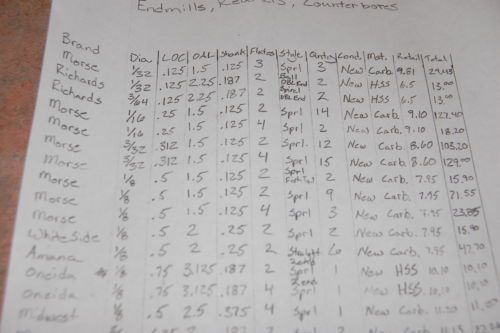 Endmills, Reamers, Counterbores
Brand Dia LOC OAL Shank Flutes Style Quntity Cond. Mat. Retail Total
Morse 1/32 .125 1.5 .125 3 Sprl 3 New Carb. 9.81 29.43
Richards 1/32 .125 2.25 .187 2 Ball DBL End 2 New HSS 6.5 13.00
Richards 3/64 .125 2.25 .187 2 Spiral DBL End 2 New HSS 6.5 13.00
Morse 1/16 .25 1.5 .125 2 Sprl 14 New Carb. 9.10 127.40
Morse 1/16 .25 1.5 .125 4 Sprl 2 New Carb. 9.10 18.20
Morse 3/32 .312 1.5 .125 2 Sprl 12 New Carb. 8.60 103.20
Morse 3/32 .312 1.5 .125 4 Sprl 15 New Carb. 8.60 129.00
Morse 1/8 .5 1.5 .125 2 Sprl 2 New Carb. 7.95 15.90
Morse 1/8 .5 1.5 .125 2 Sprl 9 New Carb. 7.95 71.55
Morse 1/8 .5 1.5 .125 4 Sprl 3 New Carb. 7.95 23.85
WhiteSide 1/8 .5 2 .25 2 Sprl 2 New Carb. 7.95 15.90
Amana 1/8 .5 2 .25 2 Straight 6 New Carb. 7.95 47.70
Oneida 1/8 .75 3.125 .187 2 Sprl 1 New HSS 10.10 10.10
Oneida 1/8 .75 3.125 .187 4 Sprl 1 New HSS 10.10 10.10
Midwest 1/8 .5 2.5 .375 4 Sprl 1 New Carb. 11.20